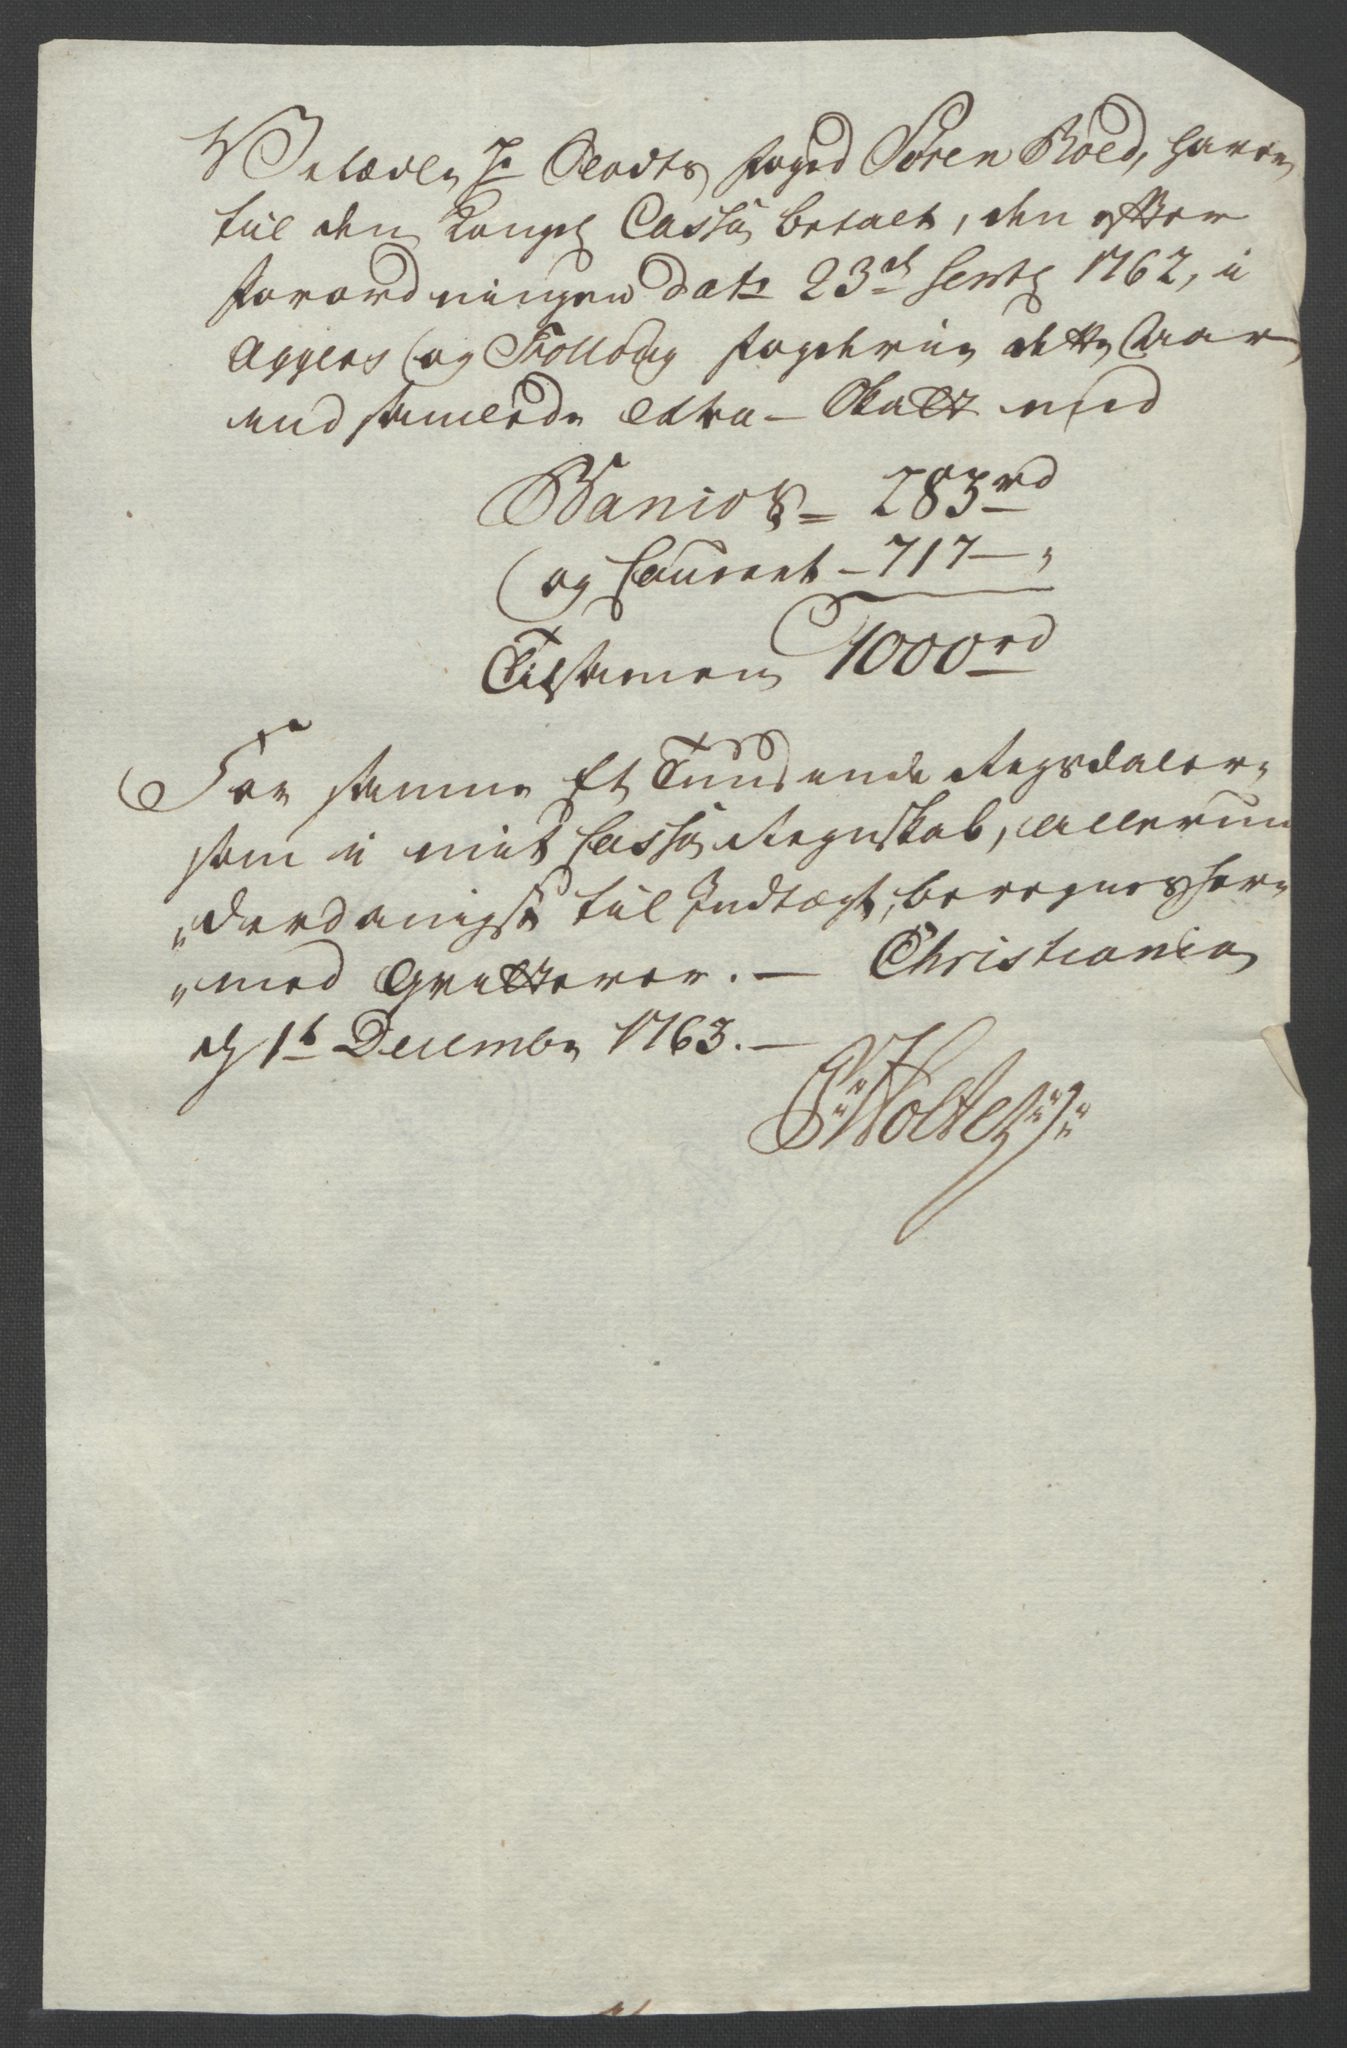 Velædle Hr Slodts foged Sören Roed, haver
til den Kongel Cassa betalt, den efter
forordningen dat: 23de Septbr 1762, i
Aggers og Folloug fogderie dette Aar
indsamlede Extra-Skatt med
Banco S = 283 rd
og Courant - 717 - "
Tilsamen 1000 rd
For samme Et Tuusende Rigsdaler
som i mit Cassa Regnskab, allerun
"derdanigst til Indtægt, beregnes her=
"med Qvitterer. - Christiania
d 1t Decembr 1763. -
P: Holter